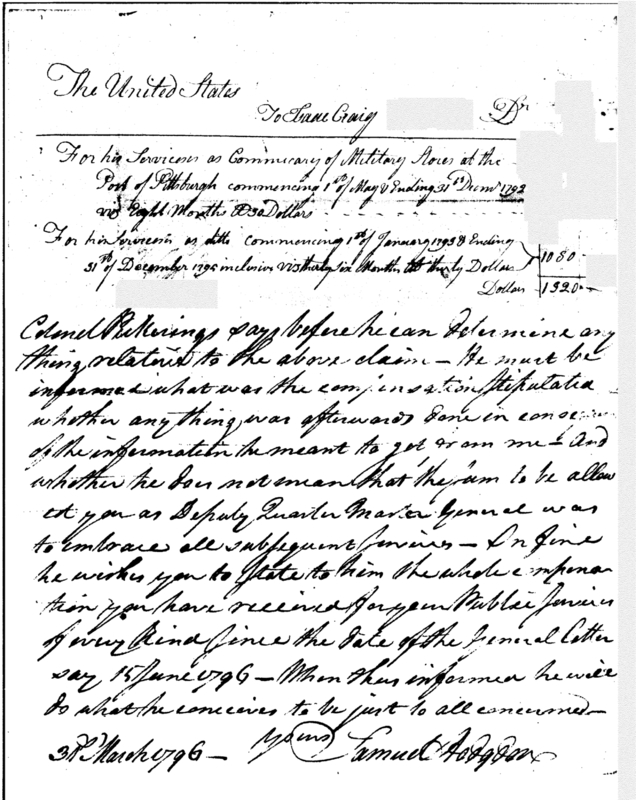 The United States
To Isaac Craig Dr
For his Servicess as Commissary of Military Stores at the
Post of Pittsburgh commencing 1st of May & Ending 31st Decemr 1792
viz Eight Months @ 30 Dollars
For his Servicess as ditto commencing 1st of January 1793 & Ending
31st of December 1795 inclusive viz thirty six Months @ thirty Dollars 1080
Dollars 1320
Colonel Pickerings says before he can determine any
thing relative to the above claim – He must be
informed what was the compensation stipulated
whether anything was afterwards done in conse
of the information he meant to get from me – And
whether he does not mean that the sum to be allow
ed you as Deputy Quarter Master General was
to embrace all subsequent Services – In fine
he wishes you to state to him the whole compensa
tion you have received for your Public Services
of every kind since the date of the General Letter
say 15 June 1796 – When thus informed he will
do what he conceives to be just to all concerned –
31st March 1796 – Yours Samuel Hodgdon